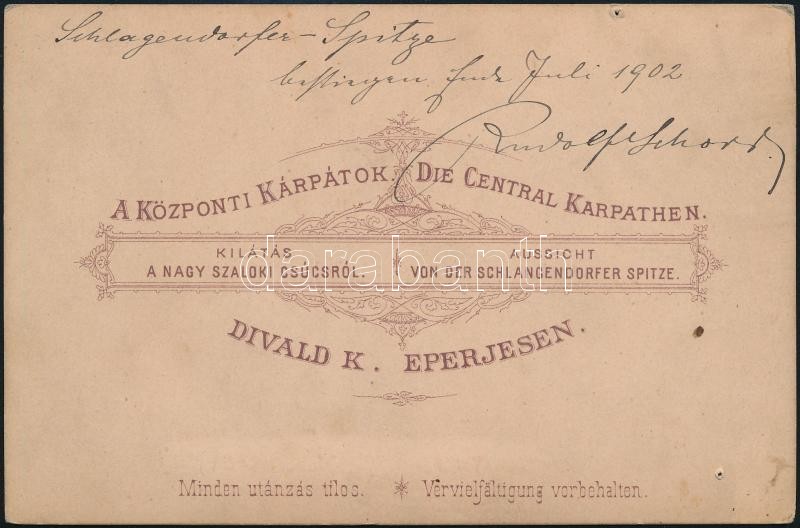 Schlagendorfer-Spitze
bestiegen Ende Juli 1902
Rudolf
A KÖZPONTI KÁRPÁTOK. DIE CENTRAL KARPATHEN.
KILÁTÁS
A NAGY SZALOKI CSÚCSRÓL.
AUSSICHT
VON DER SCHLANGENDORFER SPITZE.
darabanth
DIVALD K. EPERJESEN.
Minden utánzás tilos. Vervielfältigung vorbehalten.